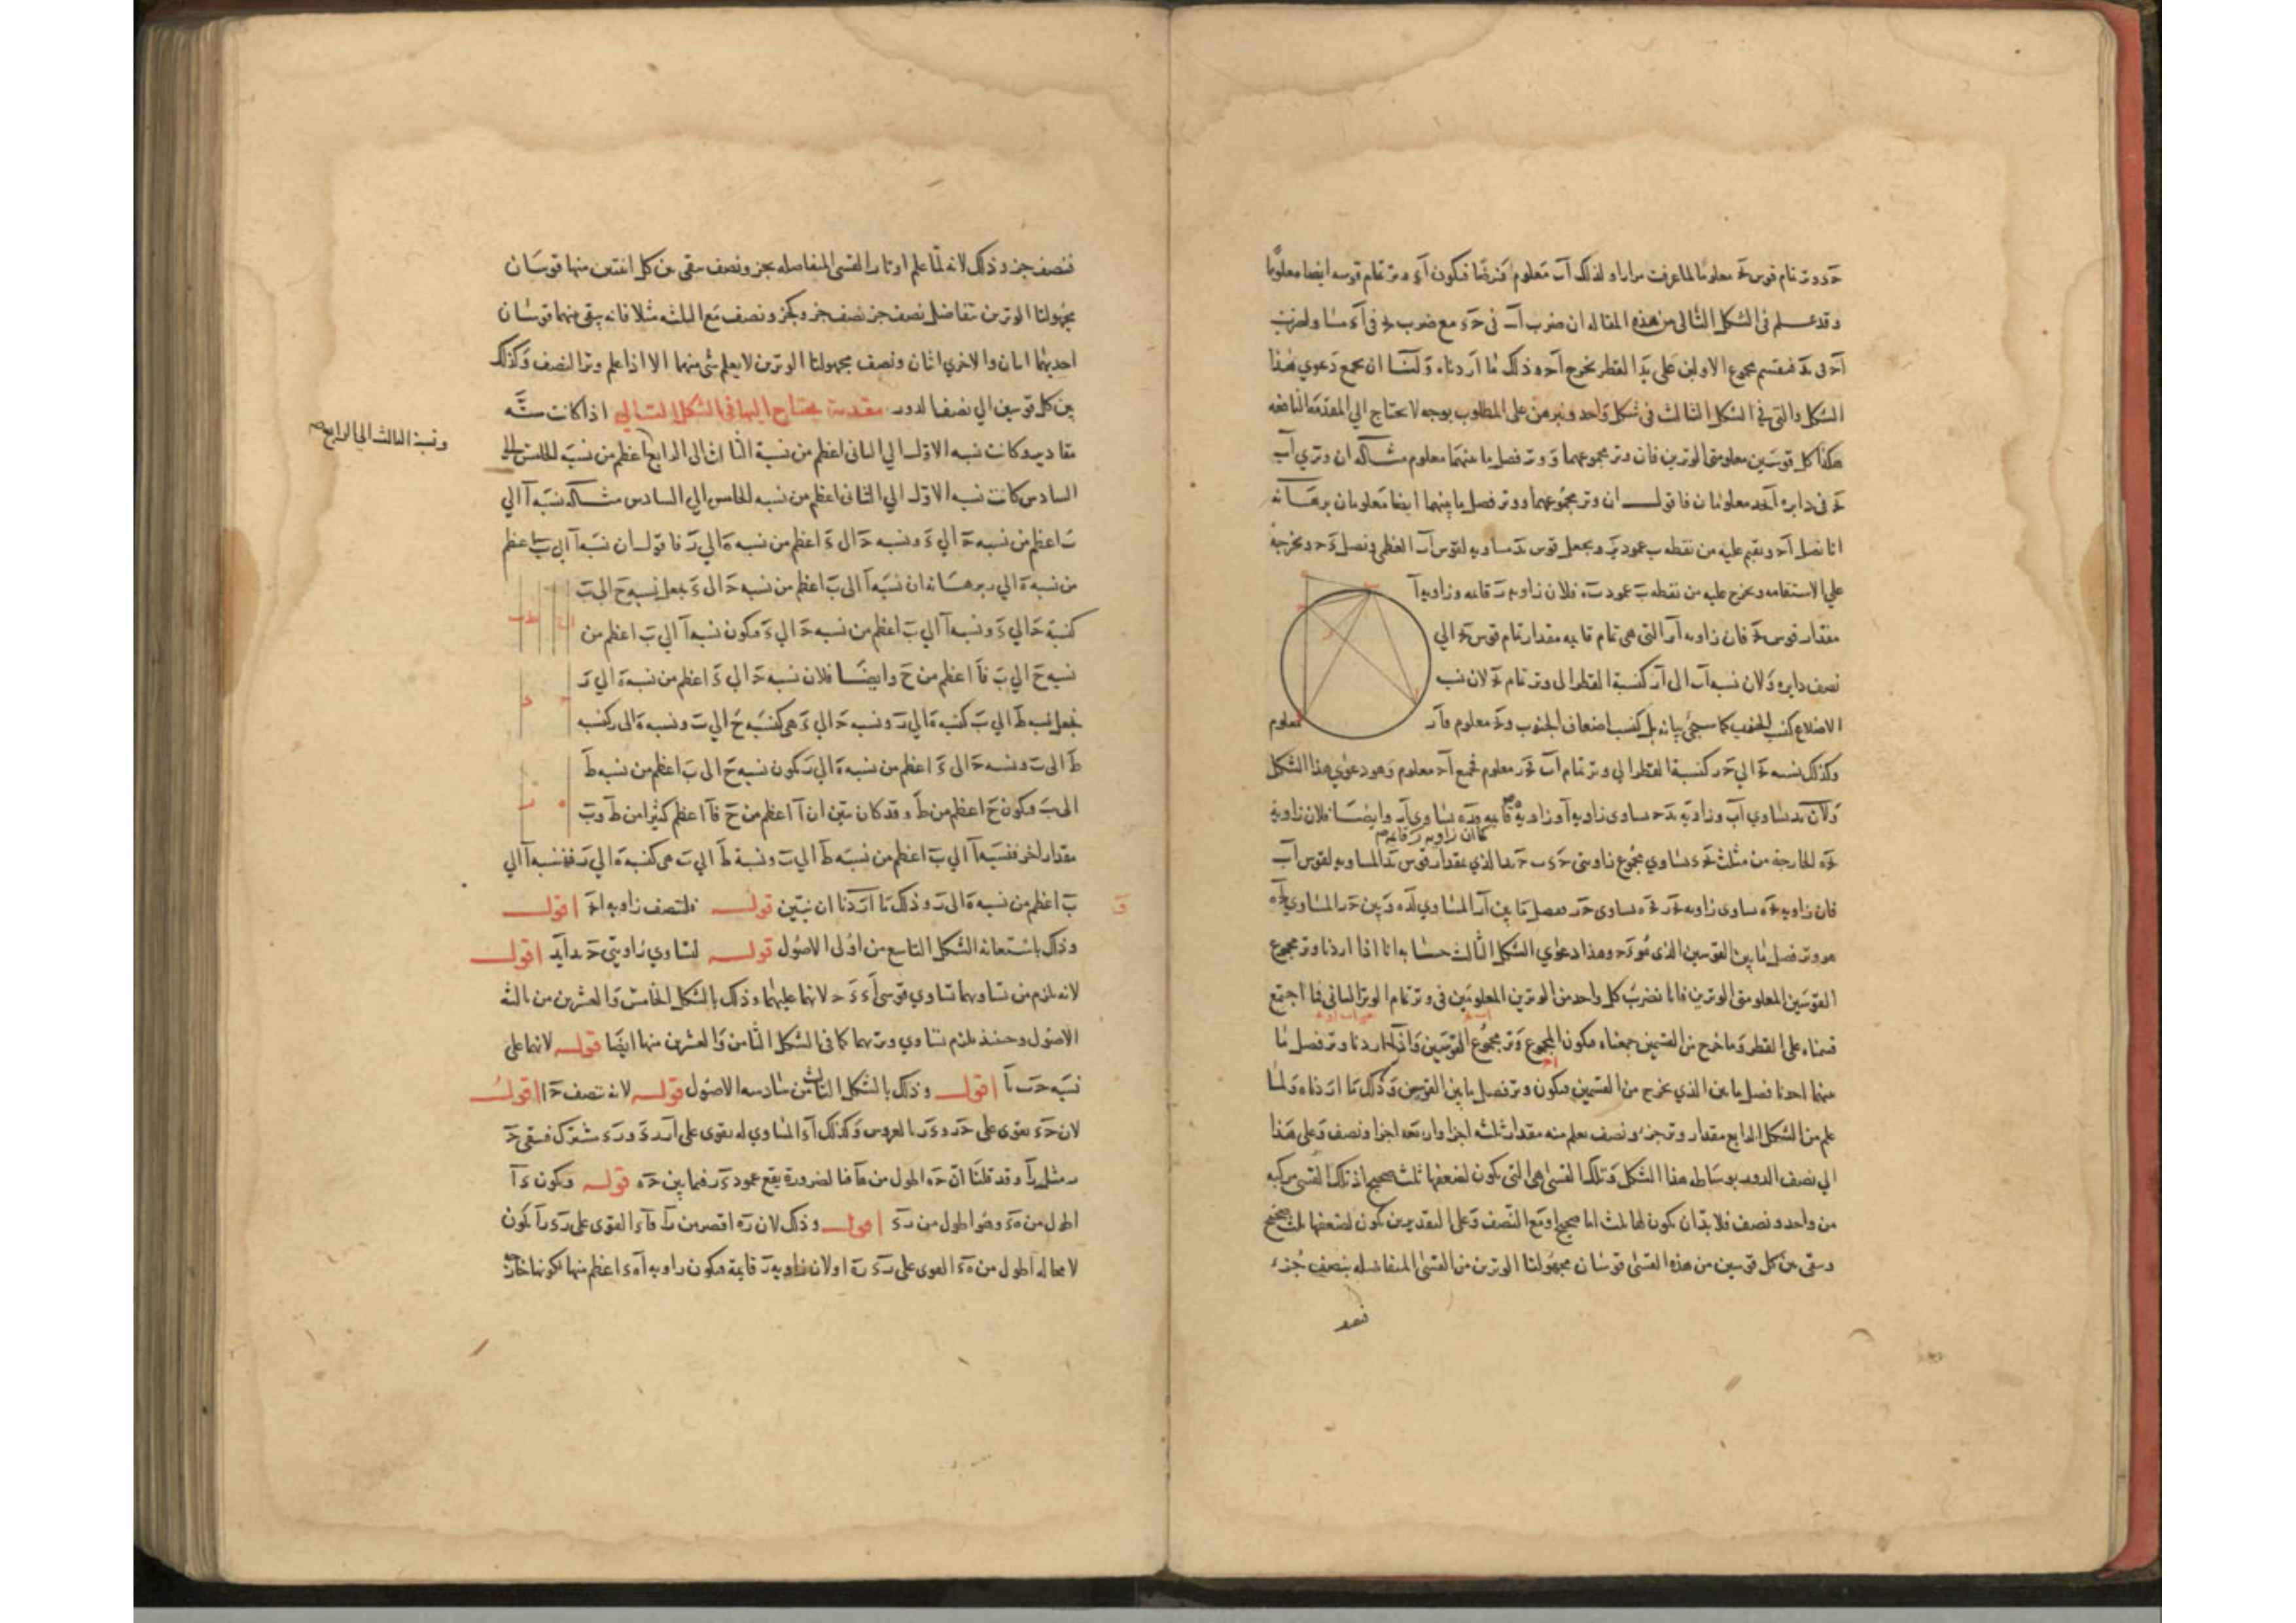 حد وتر تمام قوس بج معلوما لما عرفت مرارا ولذلك اب معلوم فرضا فيكون اد وتر تمام قوسه ايضا معلوما
وقد علم في الشكل الثاني من هذه المقالة ان ضرب اب في حد مع ضرب بج في اد مساو لضرب
اح في بد فيقسم مجموع الاولين على بد القطر يخرج اح وذلك ما اردناه ولنا ان نجمع دعوي هذا
الشكل والتي في الشكل الثالث في شكل واحد ونبرهن على المطلوب بوجه لا يحتاج الي المقدمة النافعه
هكذا كل قوسين معلومتي الوترين فان وتر مجموعهما ووتر فصل ما بينهما معلوم مثاله ان وتري اب
بج في دايره ابجد معلومان فاقول ان وتر مجموعهما ووتر فصل ما بينهما ايضا معلومان برهانه
انا نصل اح ونقيم عليه من نقطه ب عمود بر ونجعل قوس بد مساويه لقوس اب العظمى ونصل دح ونخرجه
على الاستقامه ونخرج عليه من نقطه ب عمود به فلان زاويه ر قايمه وزاويه ا
مقدار قوس بج فان زاويه ابر التي هي تمام قايمه مقدار تمام قوس بج الي
نصف دايره ولان نسبه اب الى ار كنسبة القطر الى وتر تمام بج لان نسب
الاضلاع كنسب الجيوب كما سيجئ بيانه بل كنسب اضعاف الجيوب وبج معلوم فار معلوم
وكذلك نسبه بج الي حر كنسبة القطر الي وتر تمام اب فحر معلوم فجميع اح معلوم وهو دعوي هذا الشكل
ولان بد يساوي اب وزاويه بدح يساوي زاويه ا وزاويه ه قايمه فده يساوي ار وايضا فلان زاويه
كما ان زاويه ر قايمه صح
بحه الخارجه من مثلث بحد يساوي مجموع زاويتي حدب حبد الذي بمقدار قوس بد المساويه لقوس اب
فان زاويه بحه يساوي زاويه بحر فحه يساوي حر ففصل ما بين ار المساوي لده وبين حر المساوي لحه
هو وتر فصل ما بين القوسين الذي هو دح وهذا دعوي الشكل الثالث حسابه انا اذا اردنا وتر مجموع
القوسين المعلومتي الوترين فانا نضرب كل واحد من الوترين المعلومين في وتر تمام الوتر الثاني فما اجتمع
قسمناه على القطر وما خرج من القسمين جمعناه فيكون المجموع وتر مجموع القوسين واذا اردنا وتر فصل ما
بينهما اخذنا فصل ما بين الذي يخرج من القسمين فيكون وتر فصل ما بين القوسين وذلك ما اردناه ولما
علم من الشكل الرابع مقدار وتر جزء ونصف يعلم منه مقدار ثلثه اجزا واربعه اجزا ونصف وعلى هذا
الي نصف الدور بوساطه هذا الشكل وتلك القسي هي التي يكون لضعفها ثلث صحيح اذ تلك القسي مركبه
من واحد ونصف فلا بد ان يكون لها ثلث اما صحيح او مع النصف وعلى التقديرين يكون لضعفها ثلث صحيح
ويبقى بين كل قوسين من هذه القسي قوسان مجهولتا الوترين من القسي المتفاضله بنصف جزء
فنصف جزء وذلك لانه لما علم اوتار القسي المتفاضله بجزء ونصف بقي بين كل اثنتين منها قوسان
مجهولتا الوترين تتفاضل بنصف جزء نصف جزء وبجزء ونصف مع الثلثه مثلا فانه يبقى بينهما قوسان
احديهما اثنان والاخري اثنان ونصف مجهولتا الوترين لا يعلم شئ منهما الا اذا علم وتر النصف وكذلك
بين كل قوسين الي نصف الدور مقدمة يحتاج اليها في الشكل التالي اذا كانت ستة
مقادير وكانت نسبه الاول الي الثاني اعظم من نسبة الثالث الى الرابع اعظم من نسبة الخامس الى
ونسبة الثالث الي الرابع صح
السادس كانت نسبه الاول الي الثاني اعظم من نسبه الخامس الي السادس مثاله نسبة ا الي
ب اعظم من نسبه ح الي د ونسبه ح الى د اعظم من نسبه ه الي ر فاقول ان نسبه ا الي ب اعظم
من نسبه ه الي ر برهانه ان نسبه ا الى ب اعظم من نسبه ح الى د نجعل نسبه ح الى ب
كنسبة ح الي د ونسبه ا الي ب اعظم من نسبه ح الي د فيكون نسبه ا الي ب اعظم من
نسبه ح الي ب فا اعظم من ح وايضا فلان نسبه ح الي د اعظم من نسبه ه الي ر
نجعل نسبه ط الي ب كنسبة ه الي ر ونسبه ح الي د هي كنسبه ح الي ب ونسبه ه الى ر كنسبه
ط الى ب ونسبه ح الى د اعظم من نسبه ه الي ر يكون نسبه ح الى ب اعظم من نسبه ط
الى ب فيكون ح اعظم من ط وقد كان تبين ان ا اعظم من ح فا اعظم كثيرا من ط وب
مقدار اخر فنسبه ا الي ب اعظم من نسبه ط الي ب ونسبة ط الي ب هي كنسبة ه الي ر فنسبه ا الي
ب اعظم من نسبه ه الى ر وذلك ما اردنا ان نبين قوله فلنتصف زاويه ابج اقول
وذلك باستعانه الشكل التاسع من اولى الاصول قوله لتساوي زاويتي حبد ابد اقول
لانه يلزم من تساويهما تساوي قوسي اد دح لانهما عليهما وذلك بالشكل الخامس والعشرين من ثالثه
الاصول وحينئذ يلزم تساوي وتريهما كما في الشكل الثامن والعشرين منها ايضا قوله لانها على
نسبه حب با اقول وذلك بالشكل الثالث من سادسه الاصول قوله لانه نصف حا اقول
لان حد يقوى على حر ودر بالعروس وكذلك اد المساوي له يقوى على ار رد ودر مشترك فيبقى ح‍
ر مثل را وقد قلنا ان حه اطول من ها فبالضرورة يقع عمود در فيما بين حه قوله ويكون دا
اطول من ده وهو اطول من رد اقول وذلك لان ره اقصر من را فاد القوى على رد را يكون
لا محاله اطول من ده القوى على رد ره او لان زاويه ر قايمة فيكون زاويه اهد اعظم منها لكونها خارجه